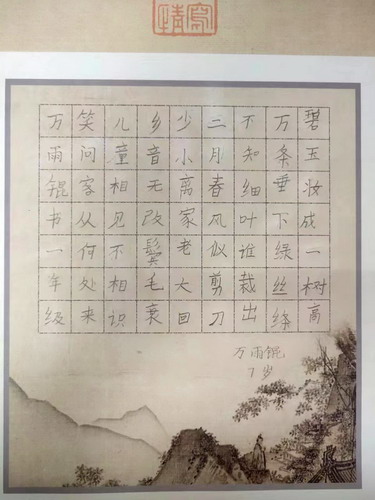 寫情
碧玉妆成一树高
万条垂下绿丝绦
不知细叶谁裁出
二月春风似剪刀
少小离家老大回
乡音无改鬓毛衰
儿童相见不相识
笑问客从何处来
万雨锟书一年级
万雨锟
7岁